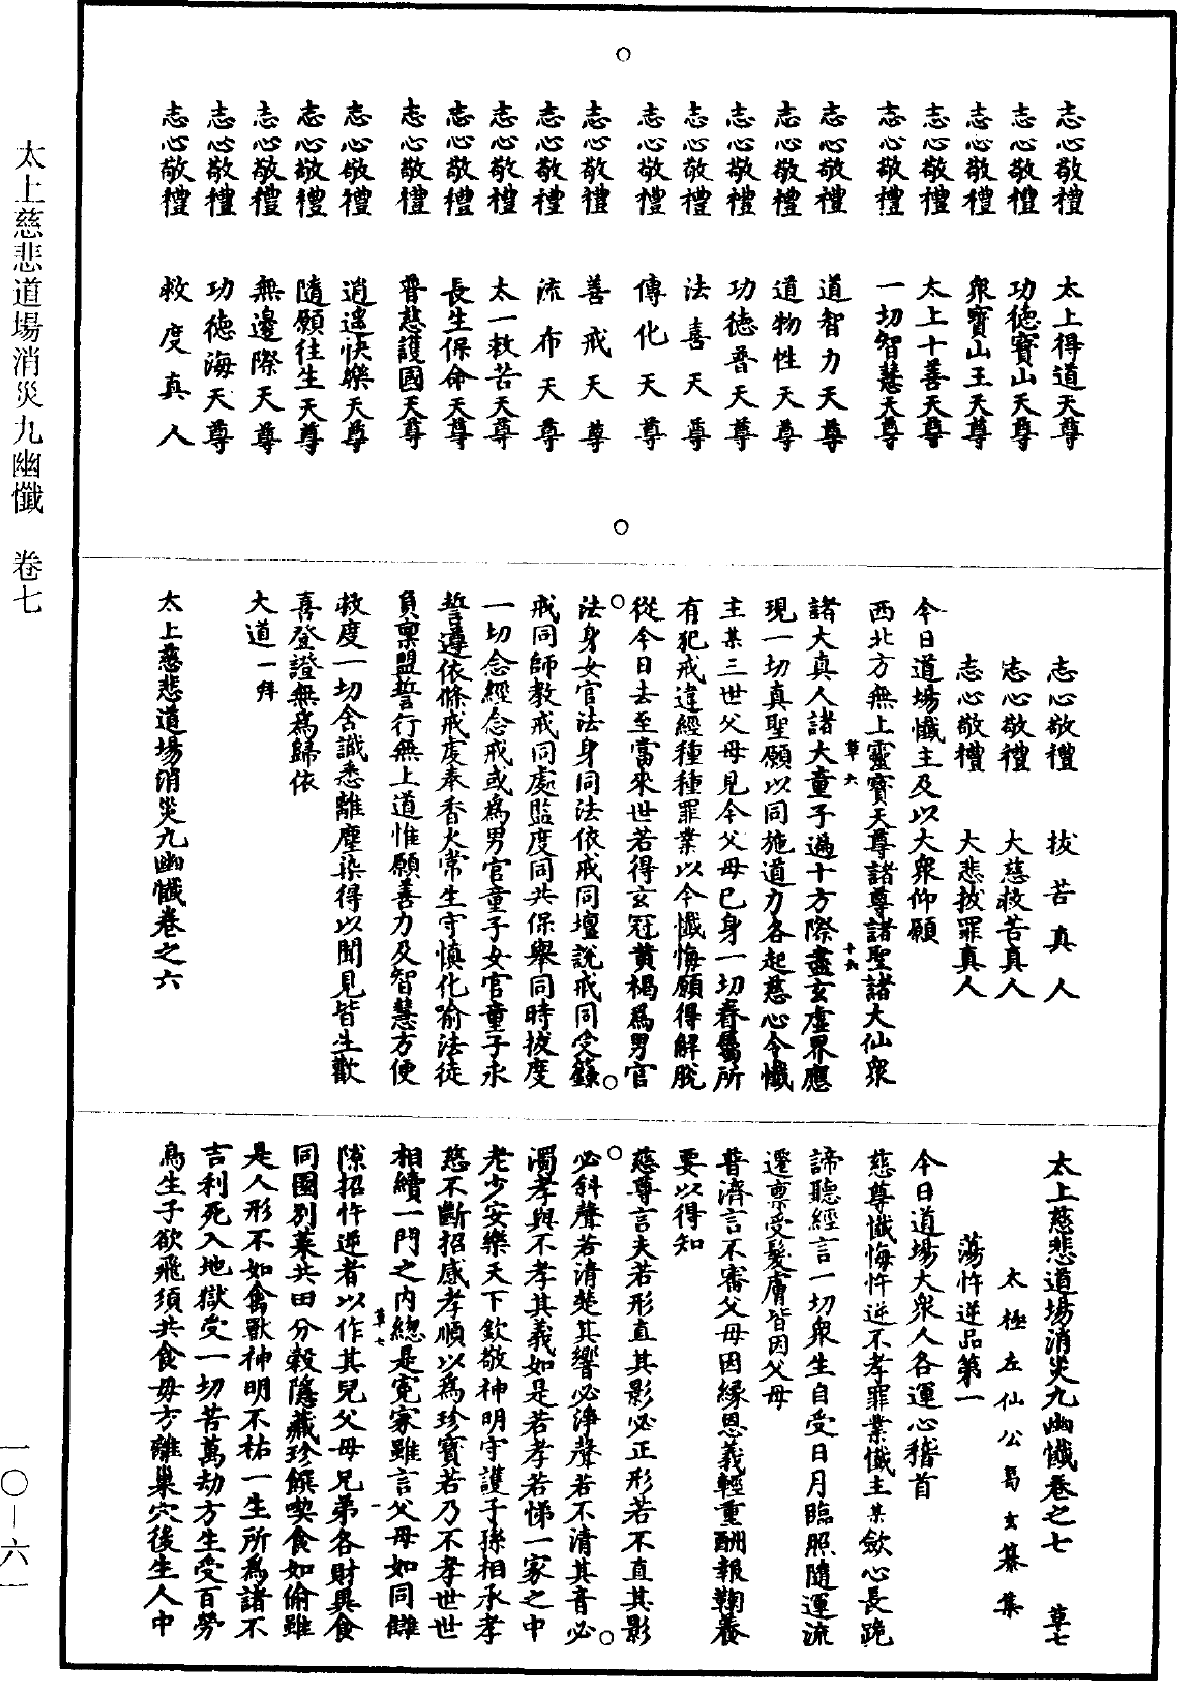 太上慈悲道場消災九幽懺 卷七
一〇—六一
志心敬禮 太上得道天尊
志心敬禮 功德寶山天尊
志心敬禮 衆寶山王天尊
志心敬禮 太上十善天尊
志心敬禮 一切智慧天尊
志心敬禮 道智力天尊
志心敬禮 道物性天尊
志心敬禮 功德普天尊
志心敬禮 法喜天尊
志心敬禮 傳化天尊
志心敬禮 善戒天尊
志心敬禮 流布天尊
志心敬禮 太一救苦天尊
志心敬禮 長生保命天尊
志心敬禮 普慈護國天尊
志心敬禮 逍遙快樂天尊
志心敬禮 隨願往生天尊
志心敬禮 無邊際天尊
志心敬禮 功德海天尊
志心敬禮 救度真人
志心敬禮 拔苦真人
志心敬禮 大慈救苦真人
志心敬禮 大悲拔罪真人
今日道場懺主及以大衆仰願
西北方無上靈寶天尊諸尊諸聖諸大仙衆
草六 十九
諸大真人諸大童子遍十方際盡玄虛界應
現一切真聖願以同施道力各起慈心令懺
主某三世父母見今父母已身一切眷屬所
有犯戒違經種種罪業以今懺悔願得解脫
從今日去至當來世若得玄冠黃褐爲男官
法身女官法身同法依戒同壇說戒同受籙
戒同師教戒同處監度同共保舉同時拔度
一切念經念戒或爲男官童子女官童子永
誓遵依條戒處奉香火常生守慎化喻法徒
負禀盟誓行無上道惟願善力及智慧方便
救度一切含識悉離塵染得以聞見皆生歡
喜登證無爲歸依
大道一拜
太上慈悲道場消災九幽懺卷之六
太上慈悲道場消災九幽懺卷之七 草七
太極左仙公葛玄纂集
蕩忤逆品第一
今日道場大衆人各運心稽首
慈尊懺悔忤逆不孝罪業懺主某斂心長跪
諦聽經言一切衆生自受日月臨照隨運流
遷禀受髮膚皆因父母
普濟言不審父母因緣恩義輕重酬報鞠養
要以得知
慈尊言夫若形直其影必正形若不直其影
必斜聲若清楚其響必淨聲若不清其音必
濁孝與不孝其義如是若孝若悌一家之中
老少安樂天下欽敬神明守護子孫相承孝
慈不斷招感孝順以爲珍寶若乃不孝世世
相續一門之內總是寃家雖言父母如同讎
草七 一
隙招忤逆者以作其兒父母兄弟各財異食
同園別菜共田分穀隱藏珍饌喫食如偷雖
是人形不如禽獸神明不祐一生所爲諸不
吉利死入地獄受一切苦萬劫方生受百勞
鳥生子欲飛須共食母方離巢穴後生人中